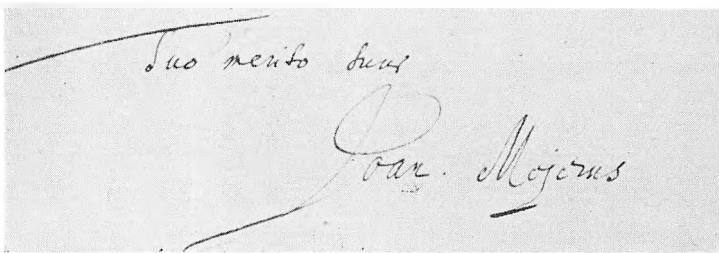 Tuo merito suus
Joan. Mejerus